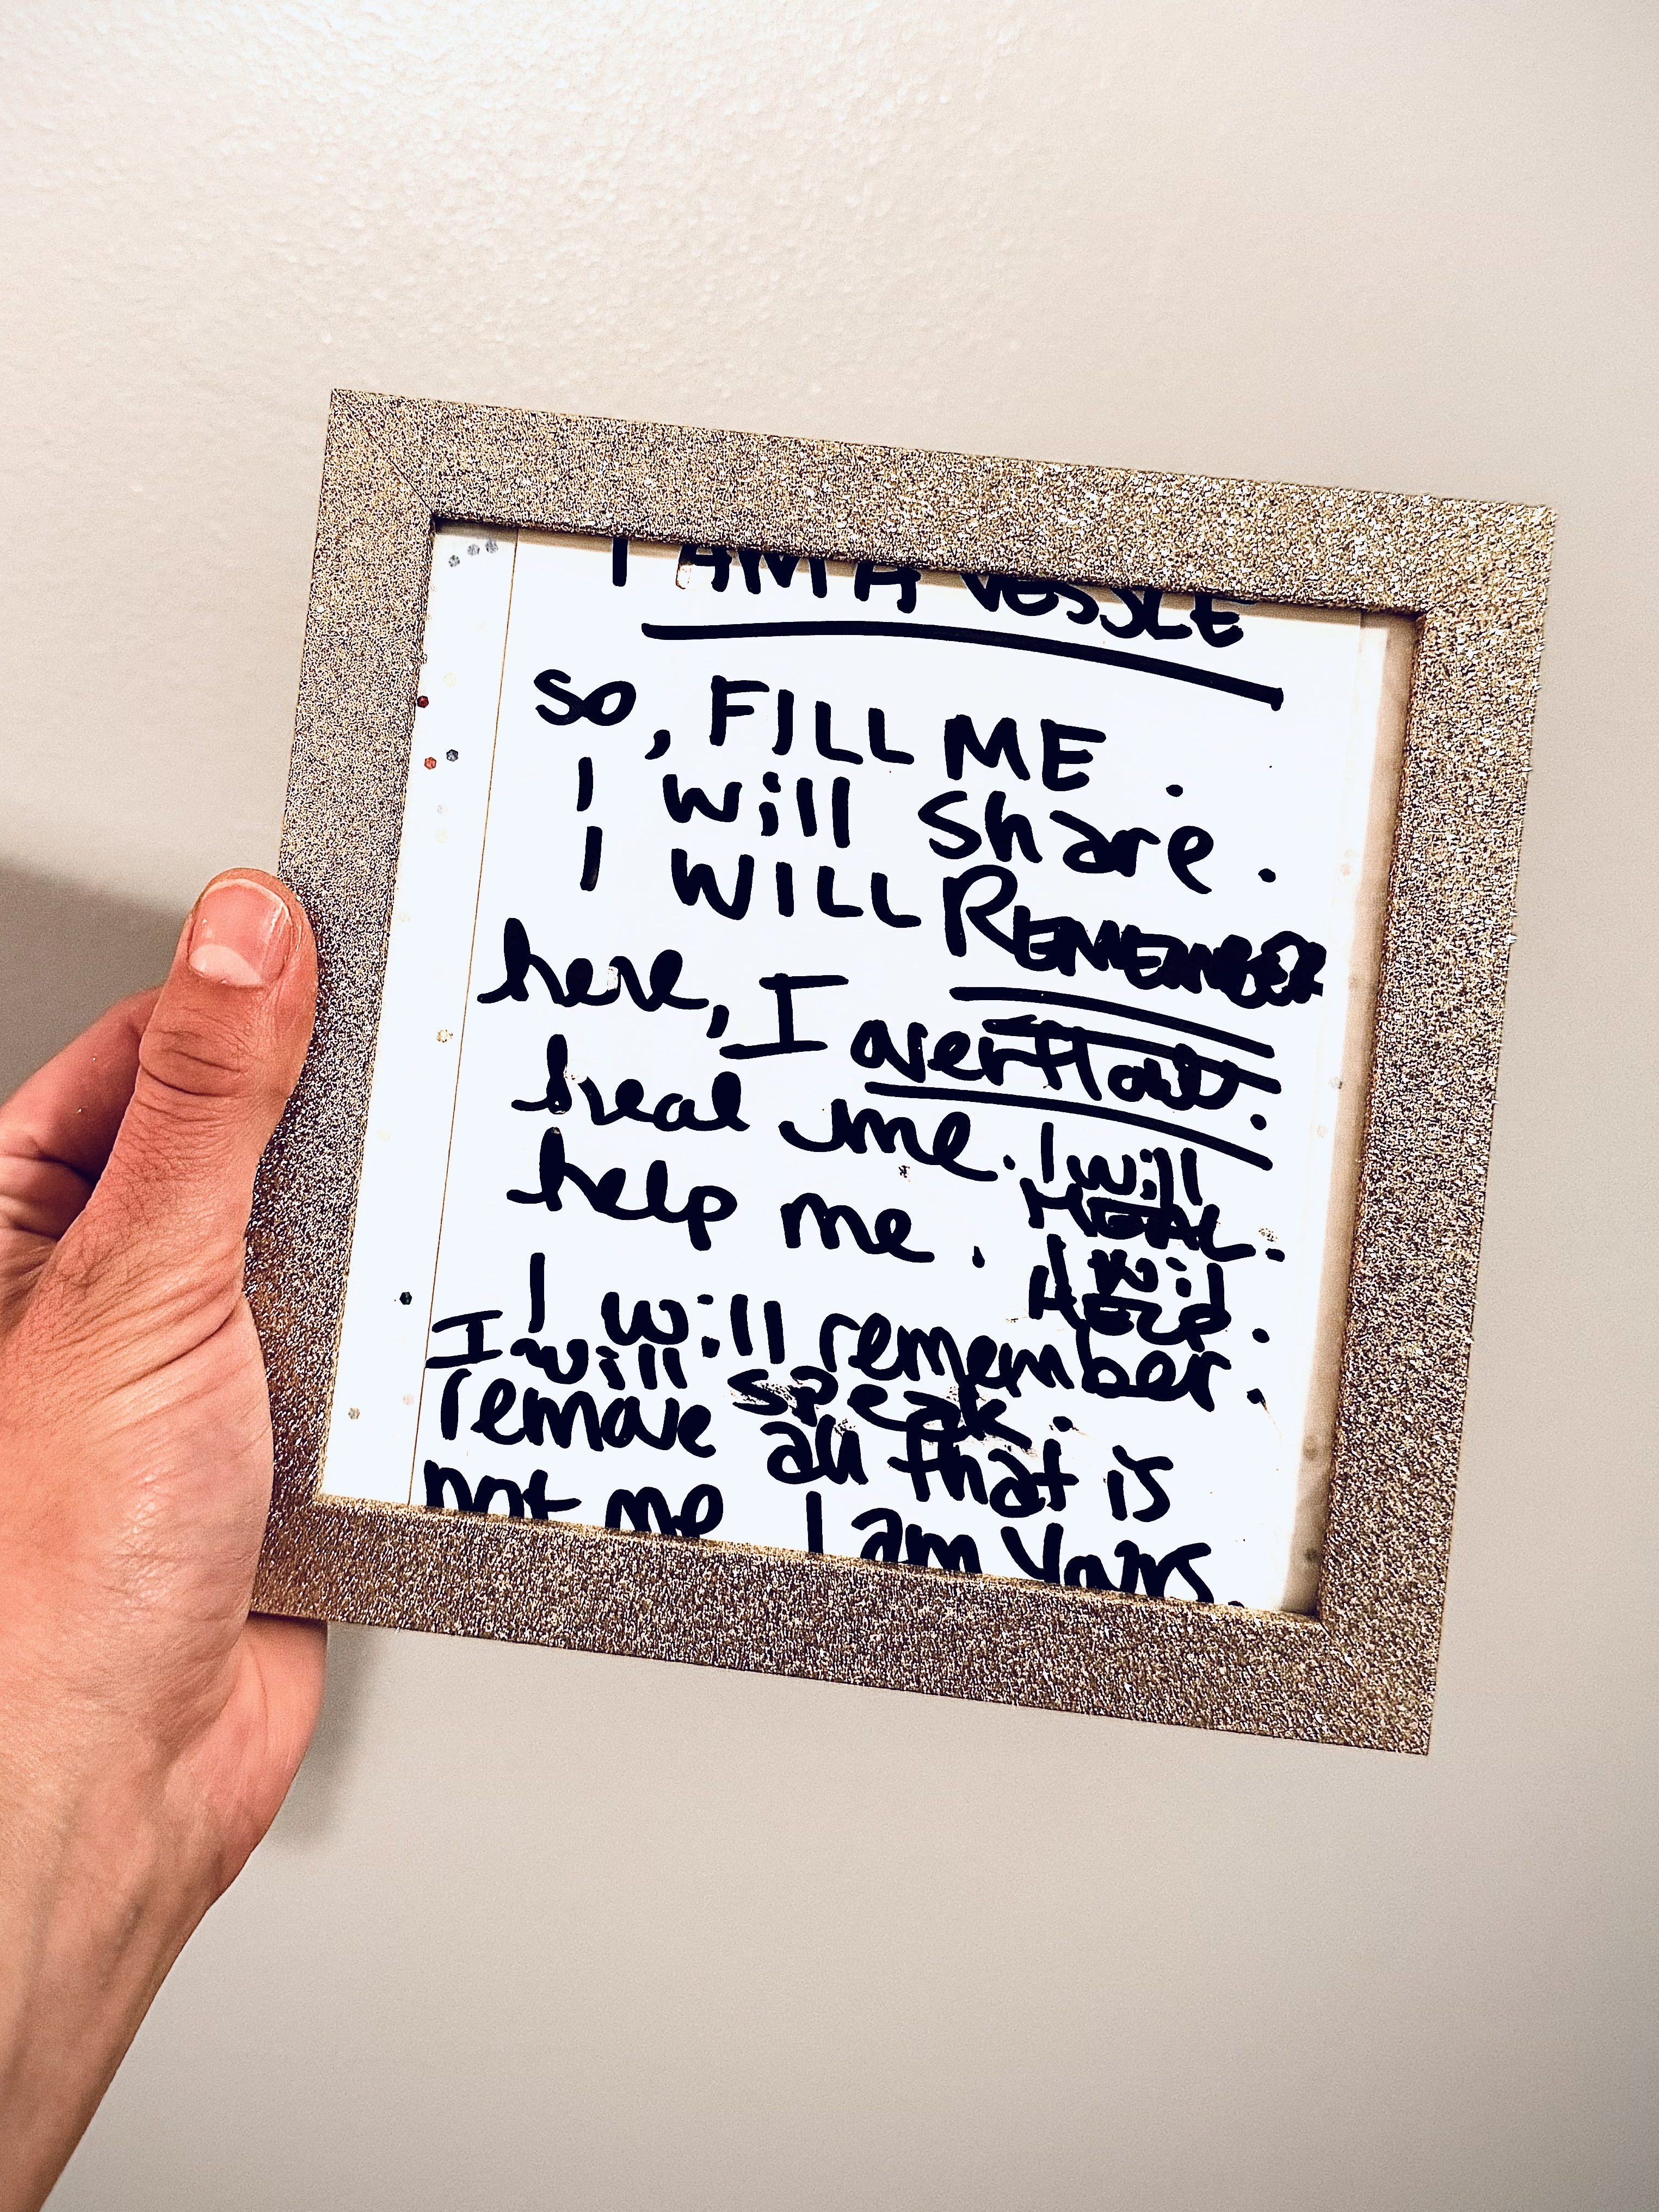 I AM A VESSLE
so, FILL ME.
I will share.
I WILL REMEMBER
here, I overflow.
heal me. I will HEAL.
help me. I will HELP.
I will remember.
I will speak.
remove all that is
not me. I am Yours.